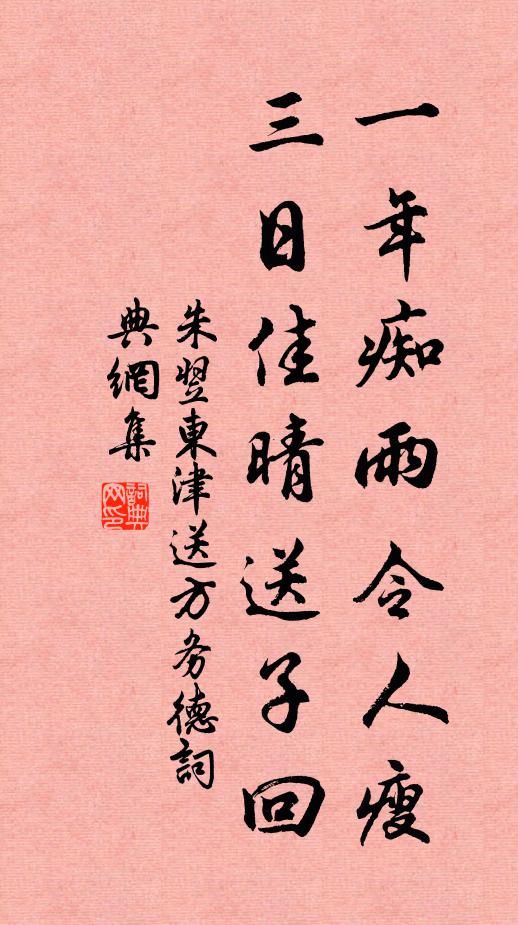 一年痴雨令人瘦
三日佳晴送子回
朱翌東津送方务德詞
典網集
詞典网印